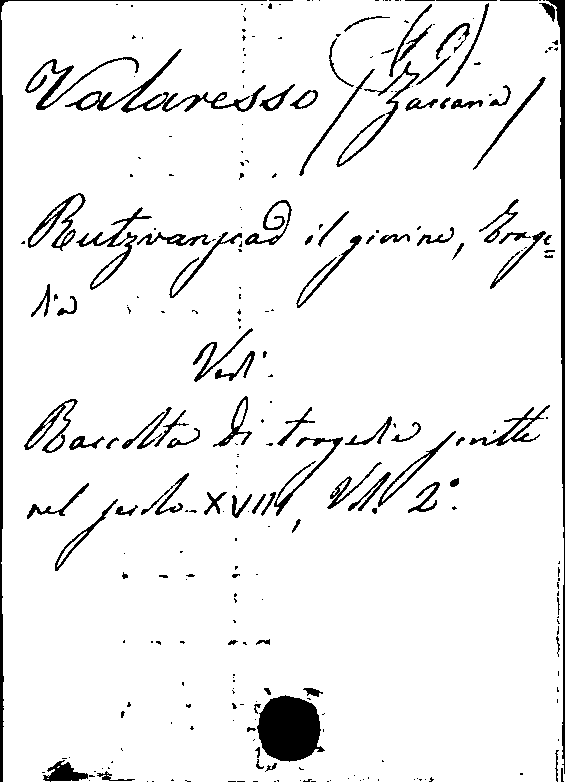 Valaresso (Zaccaria)
Rutzvanscad il giovine, Trage=
dia
Vedi.
Raccolta di tragedie scritte
nel secolo XVIII, Vol. 2°.